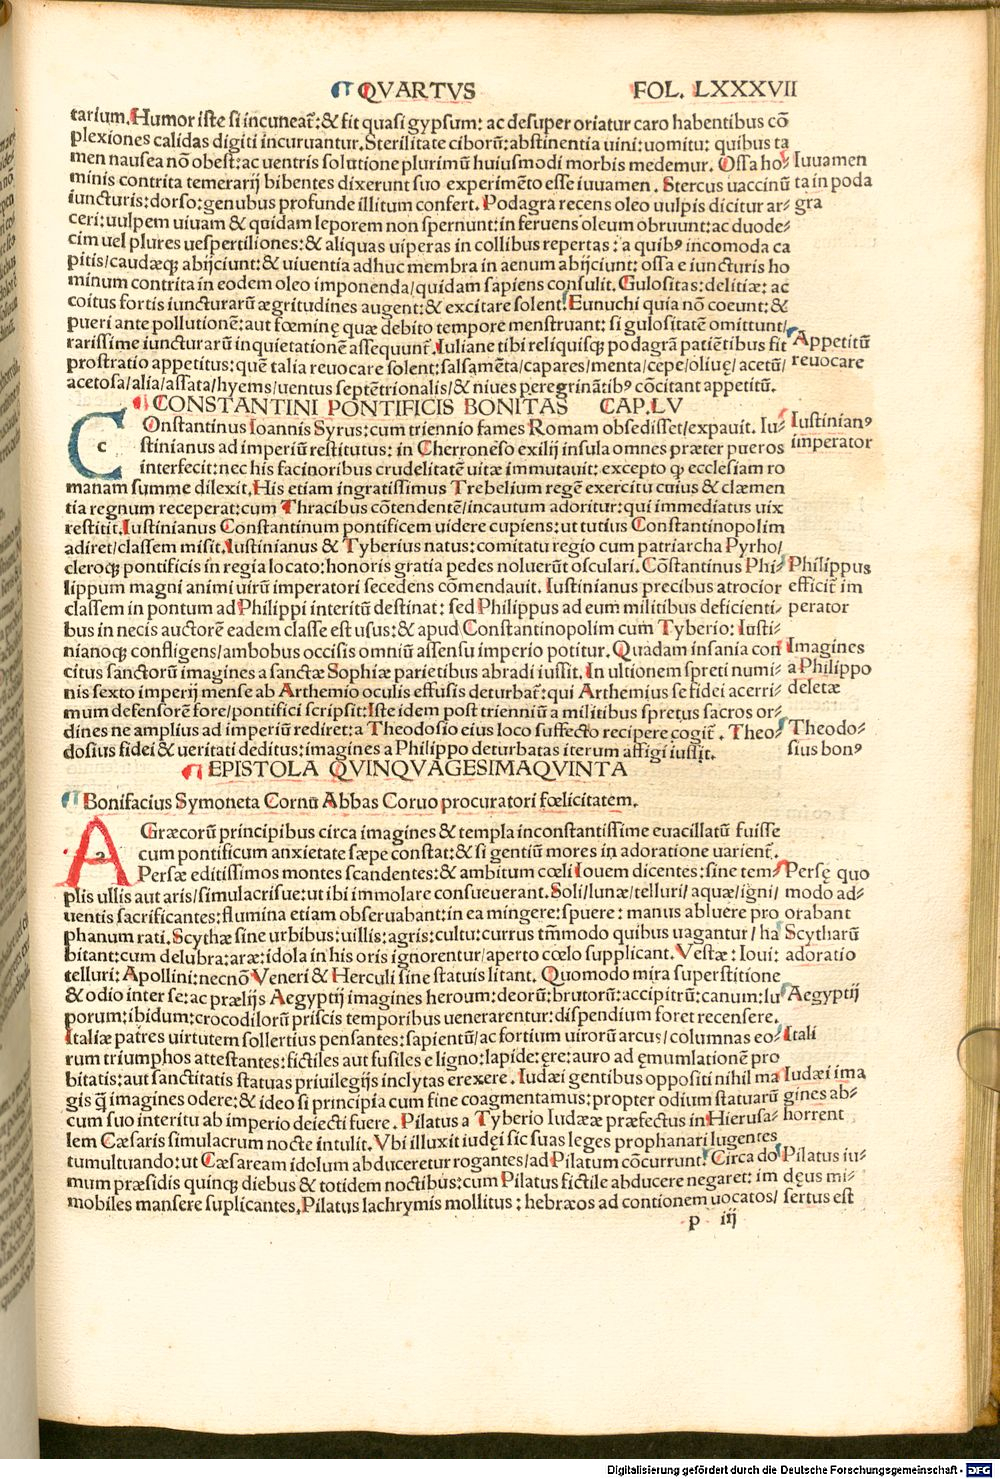 QVARTVS FOL. LXXXVII
tarium. Humor iste si incuneat̃: & fit quasi gypsum: ac desuper oriatur caro habentibus cõ
plexiones calidas digiti incuruantur. Sterilitate ciborũ: abstinentia uini: uomitu: quibus ta
men nausea nõ obest: ac uentris solutione plurimũ huiusmodi morbis medemur. Ossa ho⸗
minis contrita temerarij bibentes dixerunt suo experimẽto esse iuuamen. Stercus uaccinũ
iuncturis: dorso: genubus profunde illitum confert. Podagra recens oleo uulpis dicitur ar⸗
ceri: uulpem uiuam & quidam leporem non spernunt: in feruens oleum obruunt: ac duode⸗
cim uel plures uespertiliones: & aliquas uiperas in collibus repertas: a quibꝰ incomoda ca
pitis/caudæqꝫ abijciunt: & uiuentia adhuc membra in aenum abijciunt: ossa e iuncturis ho
minum contrita in eodem oleo imponenda/quidam sapiens consulit. Gulositas: delitiæ: ac
coitus fortis iuncturarũ ægritudines augent: & excitare solent. Eunuchi quia nõ coeunt: &
pueri ante pollutionẽ: aut fœminę quæ debito tempore menstruant: si gulositatẽ omittunt/
rarissime iuncturarũ inquietationẽ assequunt̃. Iuliane tibi reliquisqꝫ podagrã patiẽtibus fit
prostratio appetitus: quẽ talia reuocare solent: salsamẽta/capares/menta/cepe/oliuę/acetũ/
acetosa/alia/assata/hyems/uentus septẽtrionalis/& niues peregrinãtibꝰ cõcitant appetitũ.
Iuuamen
ta in poda
gra
Appetitũ
reuocare
CONSTANTINI PONTIFICIS BONITAS CAP. LV
COnstantinus Ioannis Syrus: cum triennio fames Romam obsedisset/expauit. Iu⸗
stinianus ad imperiũ restitutus: in Cherroneso exilij insula omnes præter pueros
interfecit: nec his facinoribus crudelitatẽ uitæ immutauit: excepto qꝫ ecclesiam ro
manam summe dilexit. His etiam ingratissimus Trebelium regẽ exercitu cuius & clæmen
tia regnum receperat: cum Thracibus cõtendentẽ/incautum adoritur: qui immediatus uix
restitit. Iustinianus Constantinum pontificem uidere cupiens: ut tutius Constantinopolim
adiret/classem misit. Iustinianus & Tyberius natus: comitatu regio cum patriarcha Pyrho/
cleroqꝫ pontificis in regia locato: honoris gratia pedes noluerũt osculari. Cõstantinus Phi⸗
lippum magni animi uirũ imperatori secedens cõmendauit. Iustinianus precibus atrocior
classem in pontum ad Philippi interitũ destinat: sed Philippus ad eum militibus deficienti⸗
bus in necis auctorẽ eadem classe est usus: & apud Constantinopolim cum Tyberio: Iusti⸗
nianoqꝫ confligens/ambobus occisis omniũ assensu imperio potitur. Quadam insania con
citus sanctorũ imagines a sanctæ Sophiæ parietibus abradi iussit. In ultionem spreti numi⸗
nis sexto imperij mense ab Arthemio oculis effusis deturbat̃: qui Arthemius se fidei acerri⸗
mum defensorẽ fore/pontifici scripsit: Iste idem post trienniũ a militibus spretus sacros or⸗
dines ne amplius ad imperiũ rediret: a Theodosio eius loco suffecto recipere cogit̃. Theo⸗
dosius fidei & ueritati deditus: imagines a Philippo deturbatas iterum affigi iussit.
Iustinianꝰ
imperator
Philippus
efficit̃ im
perator
Imagines
a Philippo
deletæ
Theodo⸗
sius bonꝰ
EPISTOLA QVINQVAGESIMAQVINTA
Bonifacius Symoneta Cornu Abbas Coruo procuratori fœlicitatem.
A Græcorũ principibus circa imagines & templa inconstantissime euacillatũ fuisse
cum pontificum anxietate sæpe constat: & si gentiũ mores in adoratione uarient̃.
Persæ editissimos montes scandentes: & ambitum cœli Iouem dicentes: sine tem⸗
plis ullis aut aris/simulacrisue: ut ibi immolare consueuerant. Soli/lunæ/telluri/aquæ/igni/
uentis sacrificantes: flumina etiam obseruabant: in ea mingere: spuere: manus abluere pro
phanum rati. Scythæ sine urbibus: uillis: agris: cultu: currus tm̃modo quibus uagantur/ha
bitant: cum delubra: aræ: idola in his oris ignorentur/aperto cœlo supplicant. Vestæ: Ioui:
telluri: Apollini: necnõ Veneri & Herculi sine statuis litant. Quomodo mira superstitione
& odio inter se: ac prælijs Aegyptij imagines heroum: deorũ: brutorũ: accipitrũ: canum: lu
porum: ibidum: crocodilorũ priscis temporibus uenerarentur: dispendium foret recensere.
Italiæ patres uirtutem sollertius pensantes: sapientũ/ac fortium uirorũ arcus/columnas eo⸗
rum triumphos attestantes: fictiles aut fusiles e ligno: lapide: ęre: auro ad ęmumlationẽ pro
bitatis: aut sanctitatis statuas priuilegijs inclytas erexere. Iudæi gentibus oppositi nihil ma
gis q̃ imagines odere: & ideo si principia cum fine coagmentamus: propter odium statuarũ
cum suo interitu ab imperio deiecti fuere. Pilatus a Tyberio Iudææ præfectus in Hierusa⸗
lem Cæsaris simulacrum nocte intulit. Vbi illuxit iudęi sic suas leges prophanari lugentes
tumultuando: ut Cæsaream idolum abduceretur rogantes/ad Pilatum cõcurrunt. Circa do
mum præsidis quinqꝫ diebus & totidem noctibus: cum Pilatus fictile abducere negaret: im
mobiles mansere suplicantes. Pilatus lachrymis mollitus: hebræos ad contionem uocatos/
Persę quo
modo ad⸗
orabant
Scytharũ
adoratio
Aegyptij
Itali
Iudæi ima
gines ab⸗
horrent
Pilatus iu⸗
dęus mi⸗
sertus est
p iij
Digitalisierung gefördert durch die Deutsche Forschungsgemeinschaft - DFG